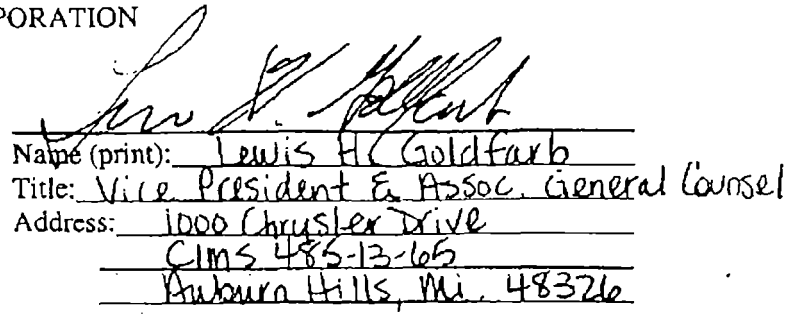 PORATION
Name (print): Lewis H. Goldfarb
Title: Vice President & Assoc. General Counsel
Address: 1000 Chrysler Drive
CIMS 485-13-65
Auburn Hills, Mi. 48326